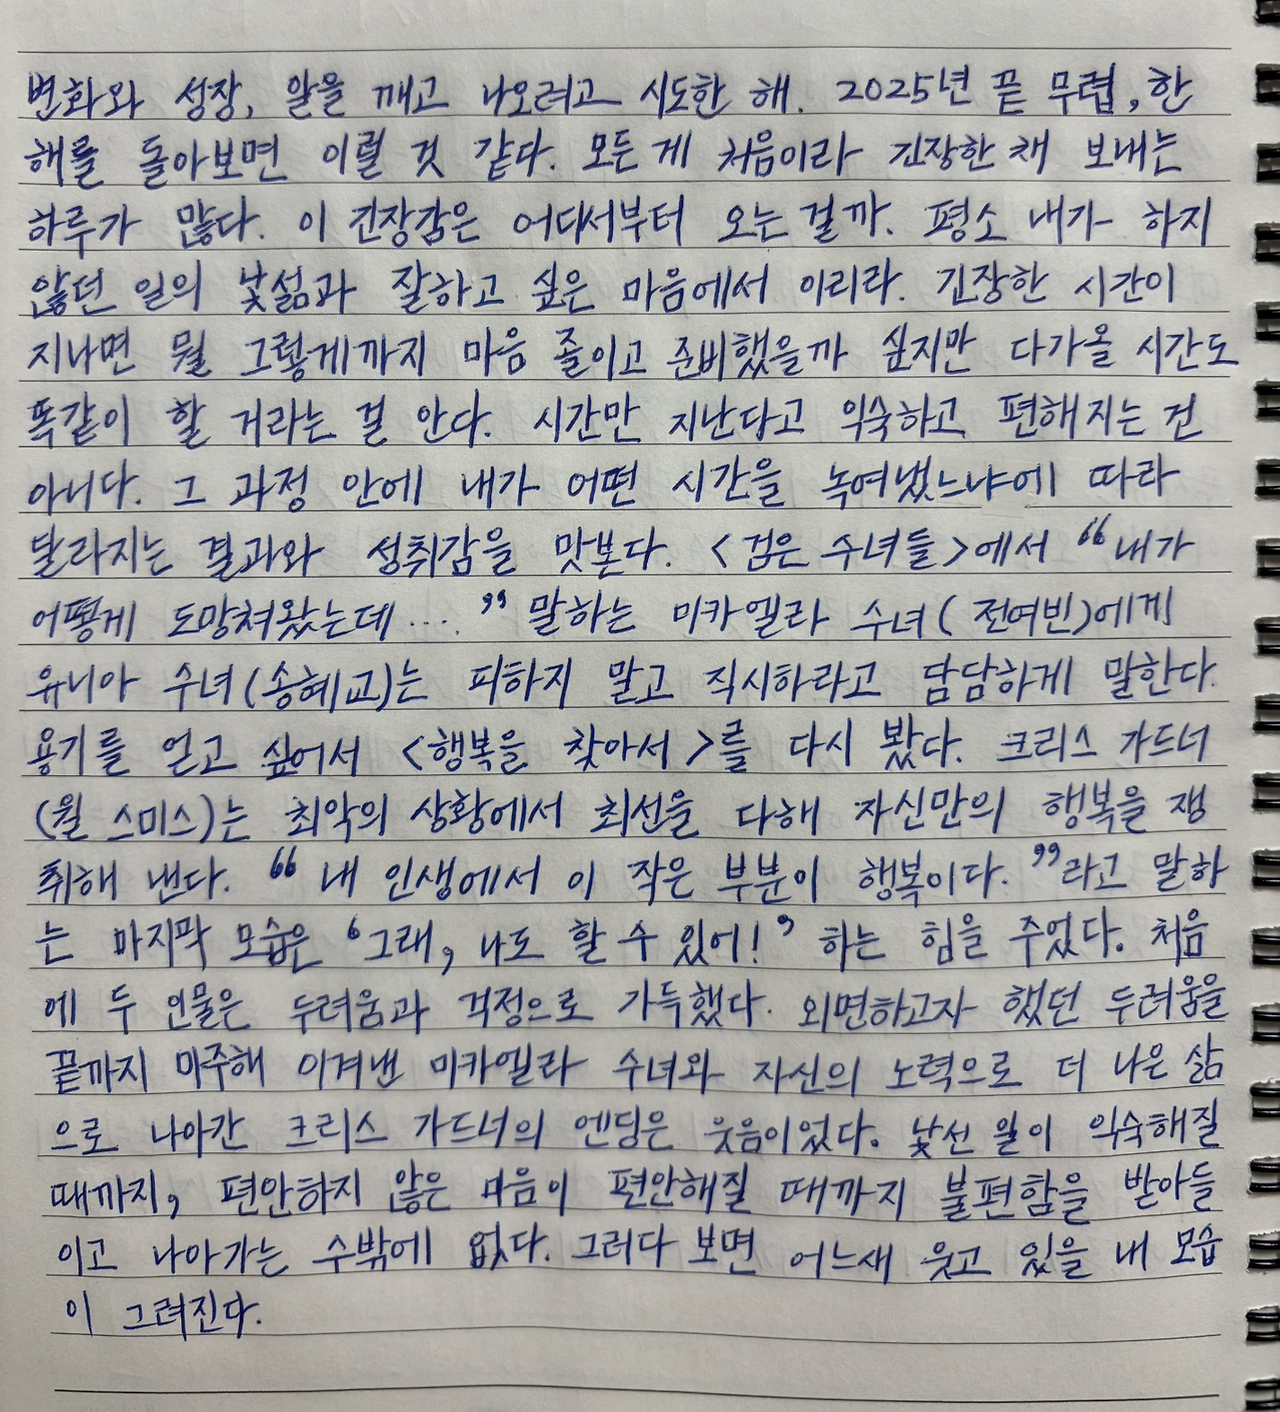 변화와 성장, 알을 깨고 나오려고 시도한 해. 2025년 끝 무렵, 한
해를 돌아보면 이럴 것 같다. 모든 게 처음이라 긴장한 채 보내는
하루가 많다. 이 긴장감은 어디서부터 오는 걸까. 평소 내가 하지
않던 일의 낯섦과 잘하고 싶은 마음에서 이리라. 긴장한 시간이
지나면 뭘 그렇게까지 마음 졸이고 준비했을까 싶지만 다가올 시간도
똑같이 할 거라는 걸 안다. 시간만 지난다고 익숙하고 편해지는 건
아니다. 그 과정 안에 내가 어떤 시간을 녹여냈느냐에 따라
달라지는 결과와 성취감을 맛본다. <검은 수녀들>에서 “내가
어떻게 도망쳐왔는데....” 말하는 미카엘라 수녀(전여빈)에게
유니아 수녀(송혜교)는 피하지 말고 직시하라고 담담하게 말한다.
용기를 얻고 싶어서 <행복을 찾아서>를 다시 봤다. 크리스 가드너
(윌 스미스)는 최악의 상황에서 최선을 다해 자신만의 행복을 쟁
취해 낸다. “내 인생에서 이 작은 부분이 행복이다.”라고 말하
는 마지막 모습은 ‘그래, 나도 할 수 있어!’ 하는 힘을 주었다. 처음
에 두 인물은 두려움과 걱정으로 가득했다. 외면하고자 했던 두려움을
끝까지 마주해 이겨낸 미카엘라 수녀와 자신의 노력으로 더 나은 삶
으로 나아간 크리스 가드너의 엔딩은 웃음이었다. 낯선 일이 익숙해질
때까지, 편안하지 않은 마음이 편안해질 때까지 불편함을 받아들
이고 나아가는 수밖에 없다. 그러다 보면 어느새 웃고 있을 내 모습
이 그려진다.